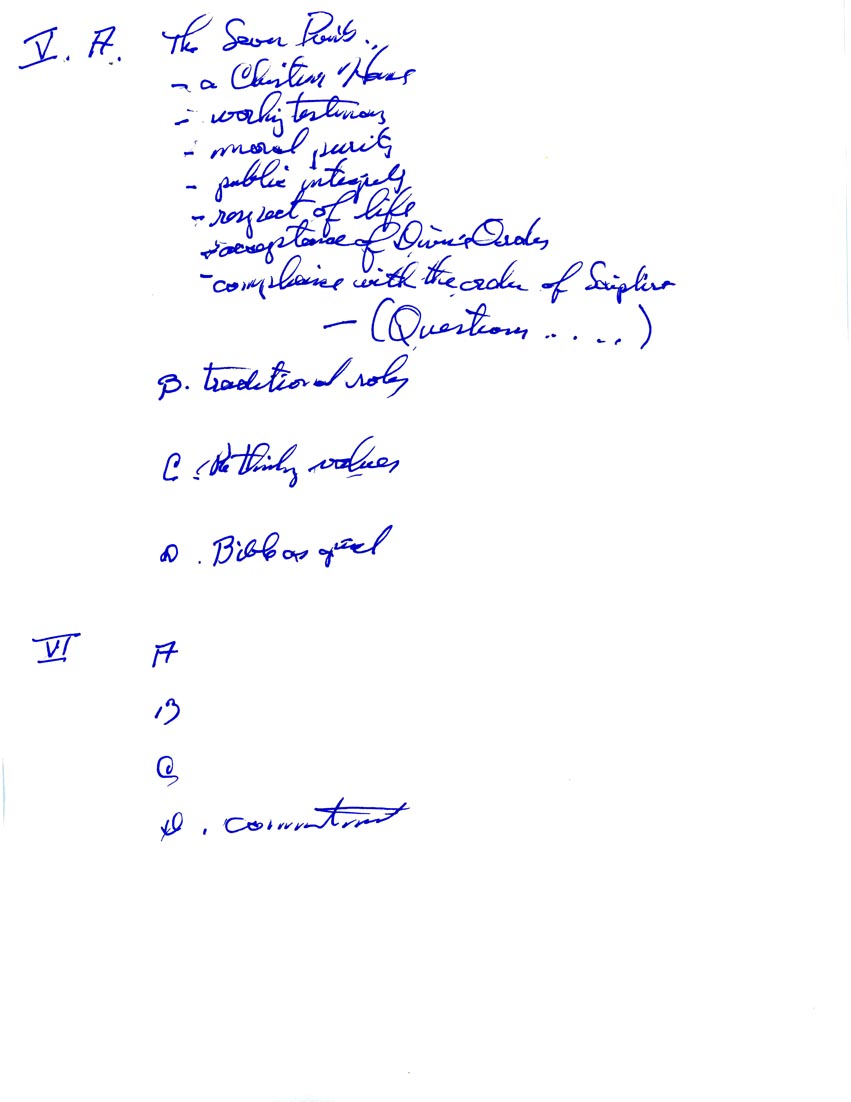 V. A. The Seven Points.
- a Christian Home
- working testimony
- moral purity
- public integrity
- respect of life
- acceptance of Divine Order
- compliance with the order of Scripture
— (Questions .....)
B. traditional roles
C. Rethinking values
D. Bible as
VI A
B
C
D. commitment